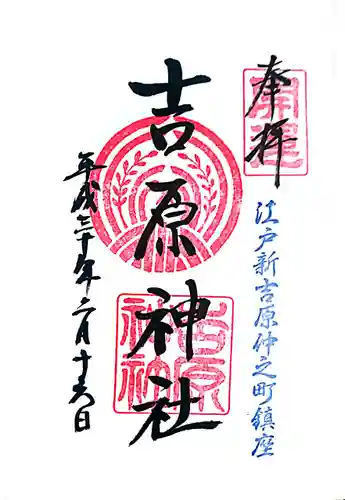 奉拝
江戸新吉原仲之町鎮座
吉原神社
吉原神社
平成三十年二月十六日